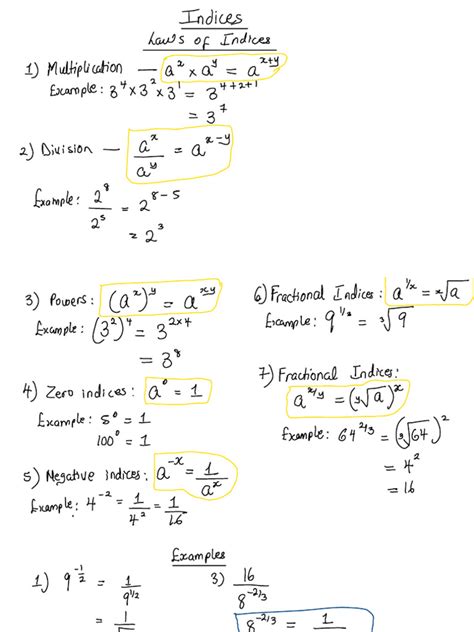 Indices
Laws of Indices
1) Multiplication — a^x × a^y = a^(x+y)
Example: 3^4 × 3^2 × 3^1 = 3^(4+2+1)
= 3^7
2) Division — a^x / a^y = a^(x-y)
Example: 2^8 / 2^5 = 2^(8-5)
= 2^3
3) Powers: (a^x)^y = a^(xy)
Example: (3^2)^4 = 3^(2×4)
= 3^8
4) Zero indices: a^0 = 1
Example: 5^0 = 1
100^0 = 1
5) Negative indices: a^(-x) = 1 / a^x
Example: 4^(-2) = 1 / 4^2 = 1 / 16
6) Fractional Indices: a^(1/x) = ˣ√a
Example: 9^(1/2) = ²√9
7) Fractional Indices:
a^(x/y) = (ʸ√a)^x
Example: 64^(2/3) = (³√64)^2
= 4^2
= 16
Examples
1) 9^(-1/2) = 1 / 9^(1/2)
= 1
3) 16 / 8^(-2/3)
8^(-2/3) = 1